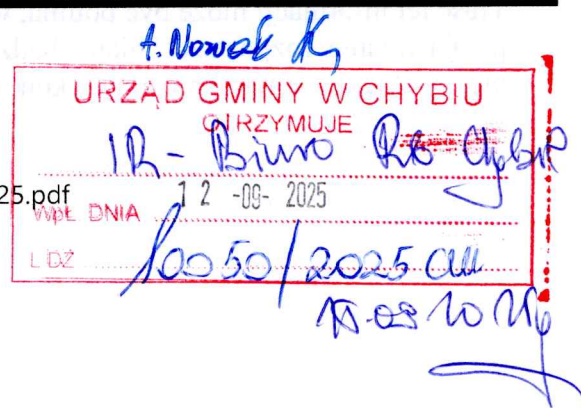 A. Nowak
URZĄD GMINY W CHYBIU
OTRZYMUJE
IR - Biuro Chybie
25.pdf
WPŁ. DNIA 12 -09- 2025
L.DZ 10050/2025